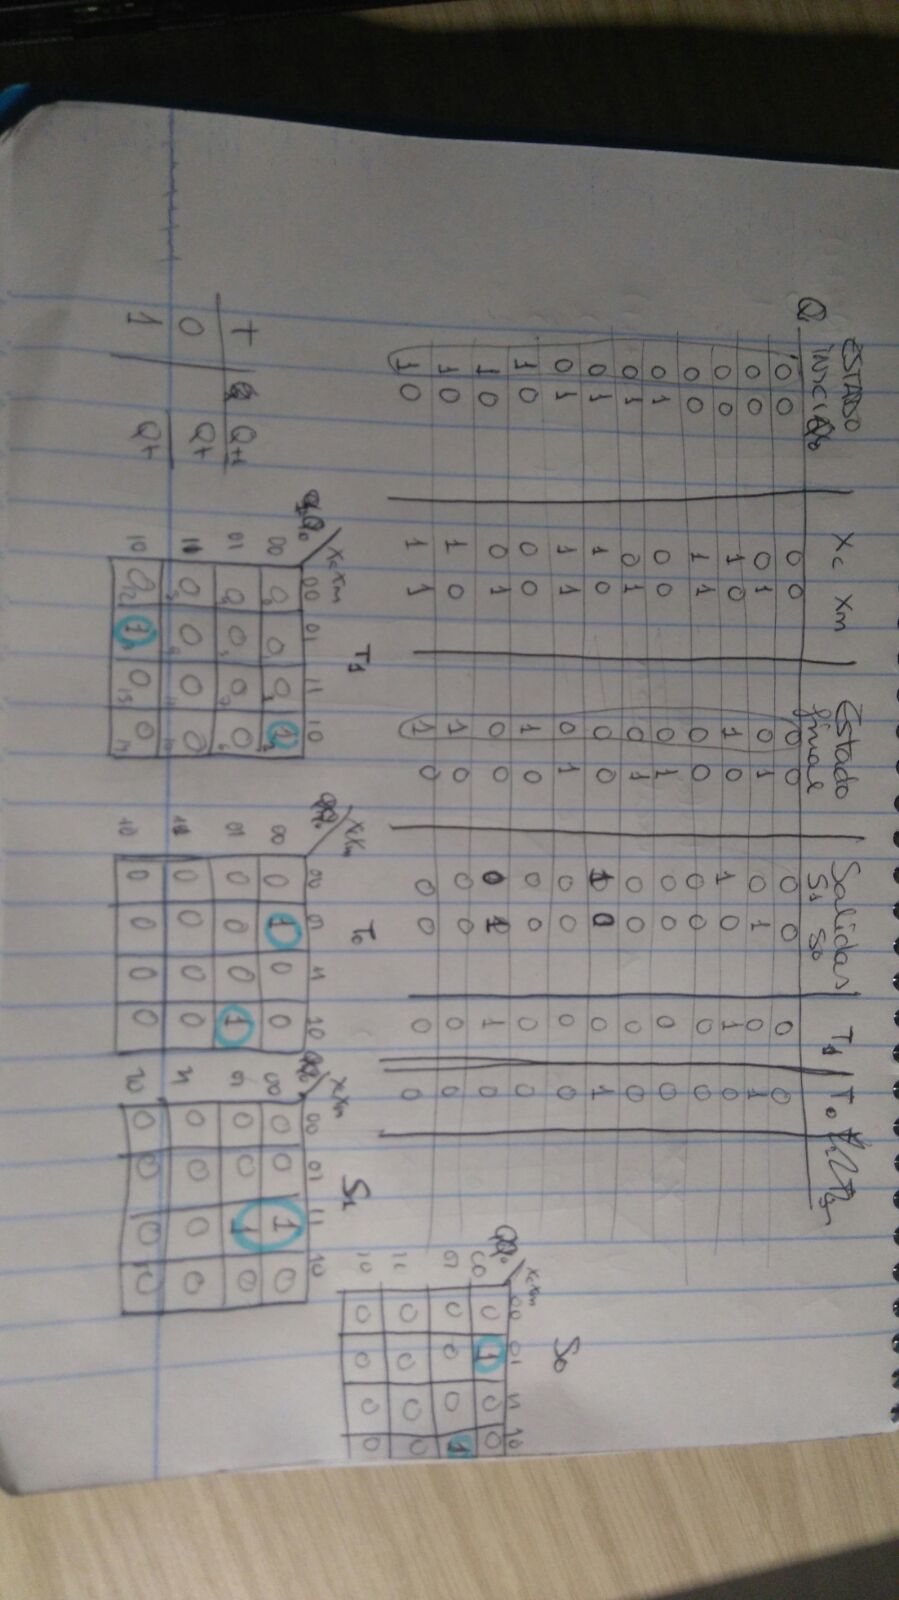 ESTADO Xc Xm Estado Salidas T1 T0
Q INICIAL Q0 final S1 S0
0 0 0 0 0 0 0 0 0 0
0 0 0 1 0 1 0 1 0 1
0 0 1 0 1 0 1 0 1 0
0 0 1 1 0 0 0 0 0 0
0 1 0 0 0 1 0 0 0 0
0 1 0 1 0 1 0 0 0 0
0 1 1 0 0 0 1 0 0 1
0 1 1 1 0 1 0 0 0 0
1 0 0 0 1 0 0 0 0 0
1 0 0 1 0 0 0 1 1 0
1 0 1 0 1 0 0 0 0 0
1 0 1 1 1 0 0 0 0 0
S0
XcXm
00 01 11 10
QQ0
00 0 1 0 0
01 0 0 0 1
11 0 0 0 0
10 0 0 0 0
T1
XcXm
Q1Q0 00 01 11 10
00 0 0 0 1
01 0 0 0 0
11 0 0 0 0
10 0 1 0 0
T0
XcXm
QQ0 00 01 11 10
00 0 1 0 0
01 0 0 0 1
11 0 0 0 0
10 0 0 0 0
S1
XcXm
QQ0 00 01 11 10
00 0 0 1 0
01 0 0 1 0
11 0 0 0 0
10 0 0 0 0
T Q Q+1
0 Qt
1 Qt